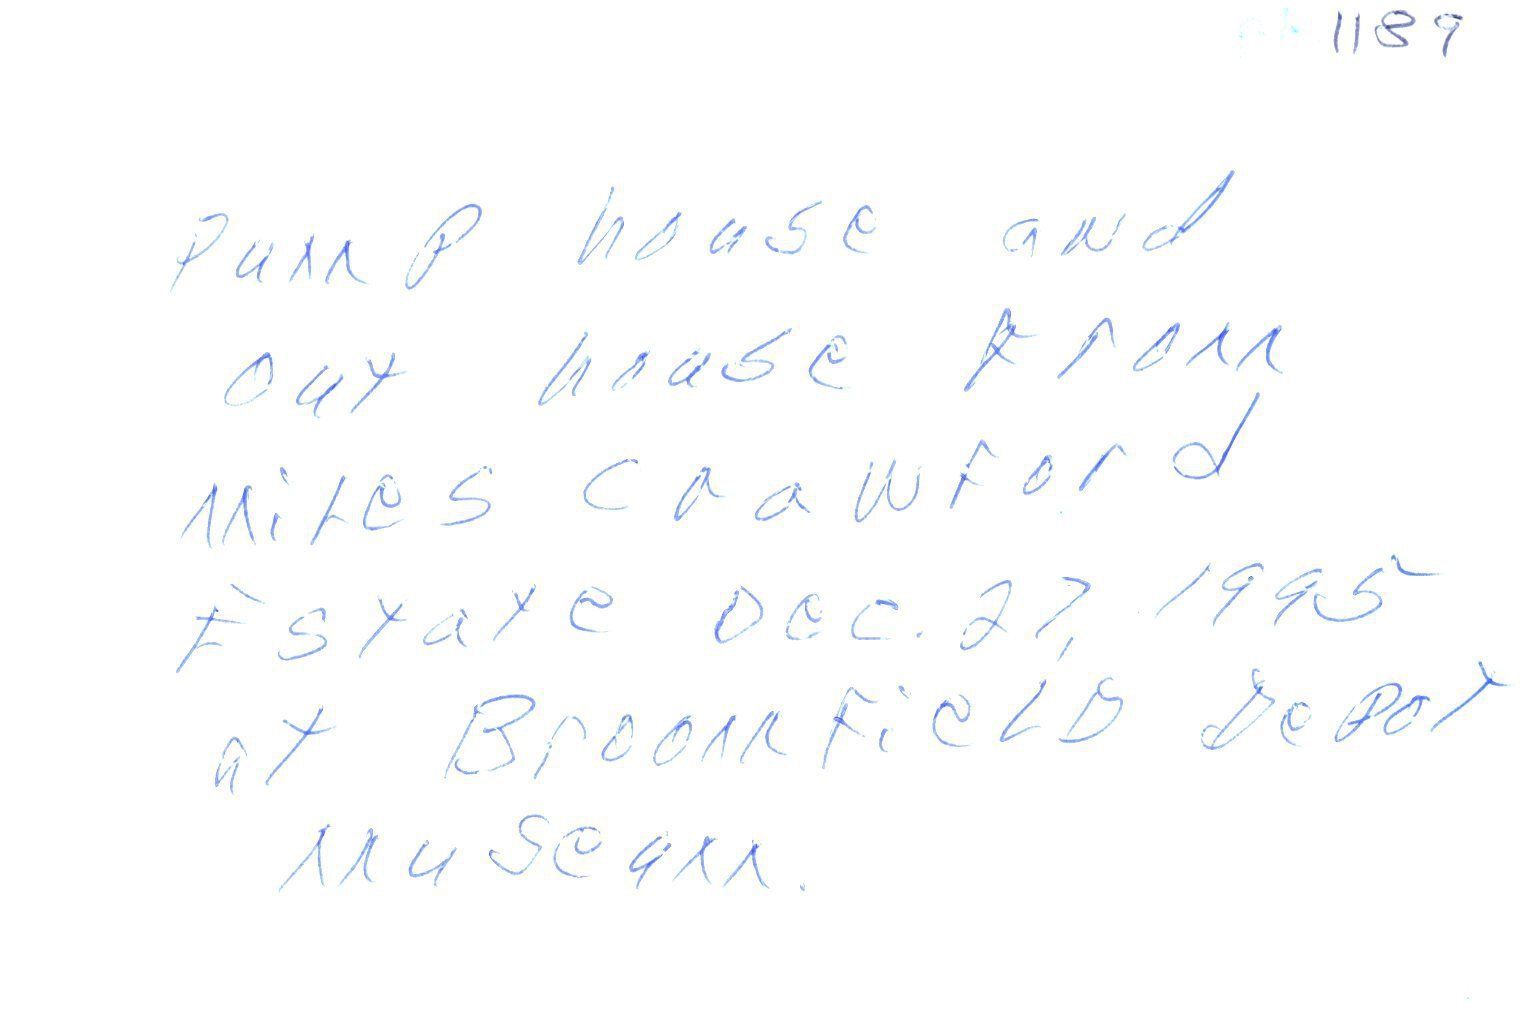 1189
Pump house and
out house from
Miles Crawford
Estate Dec. 27, 1995
at Broomfield Depot
museum.